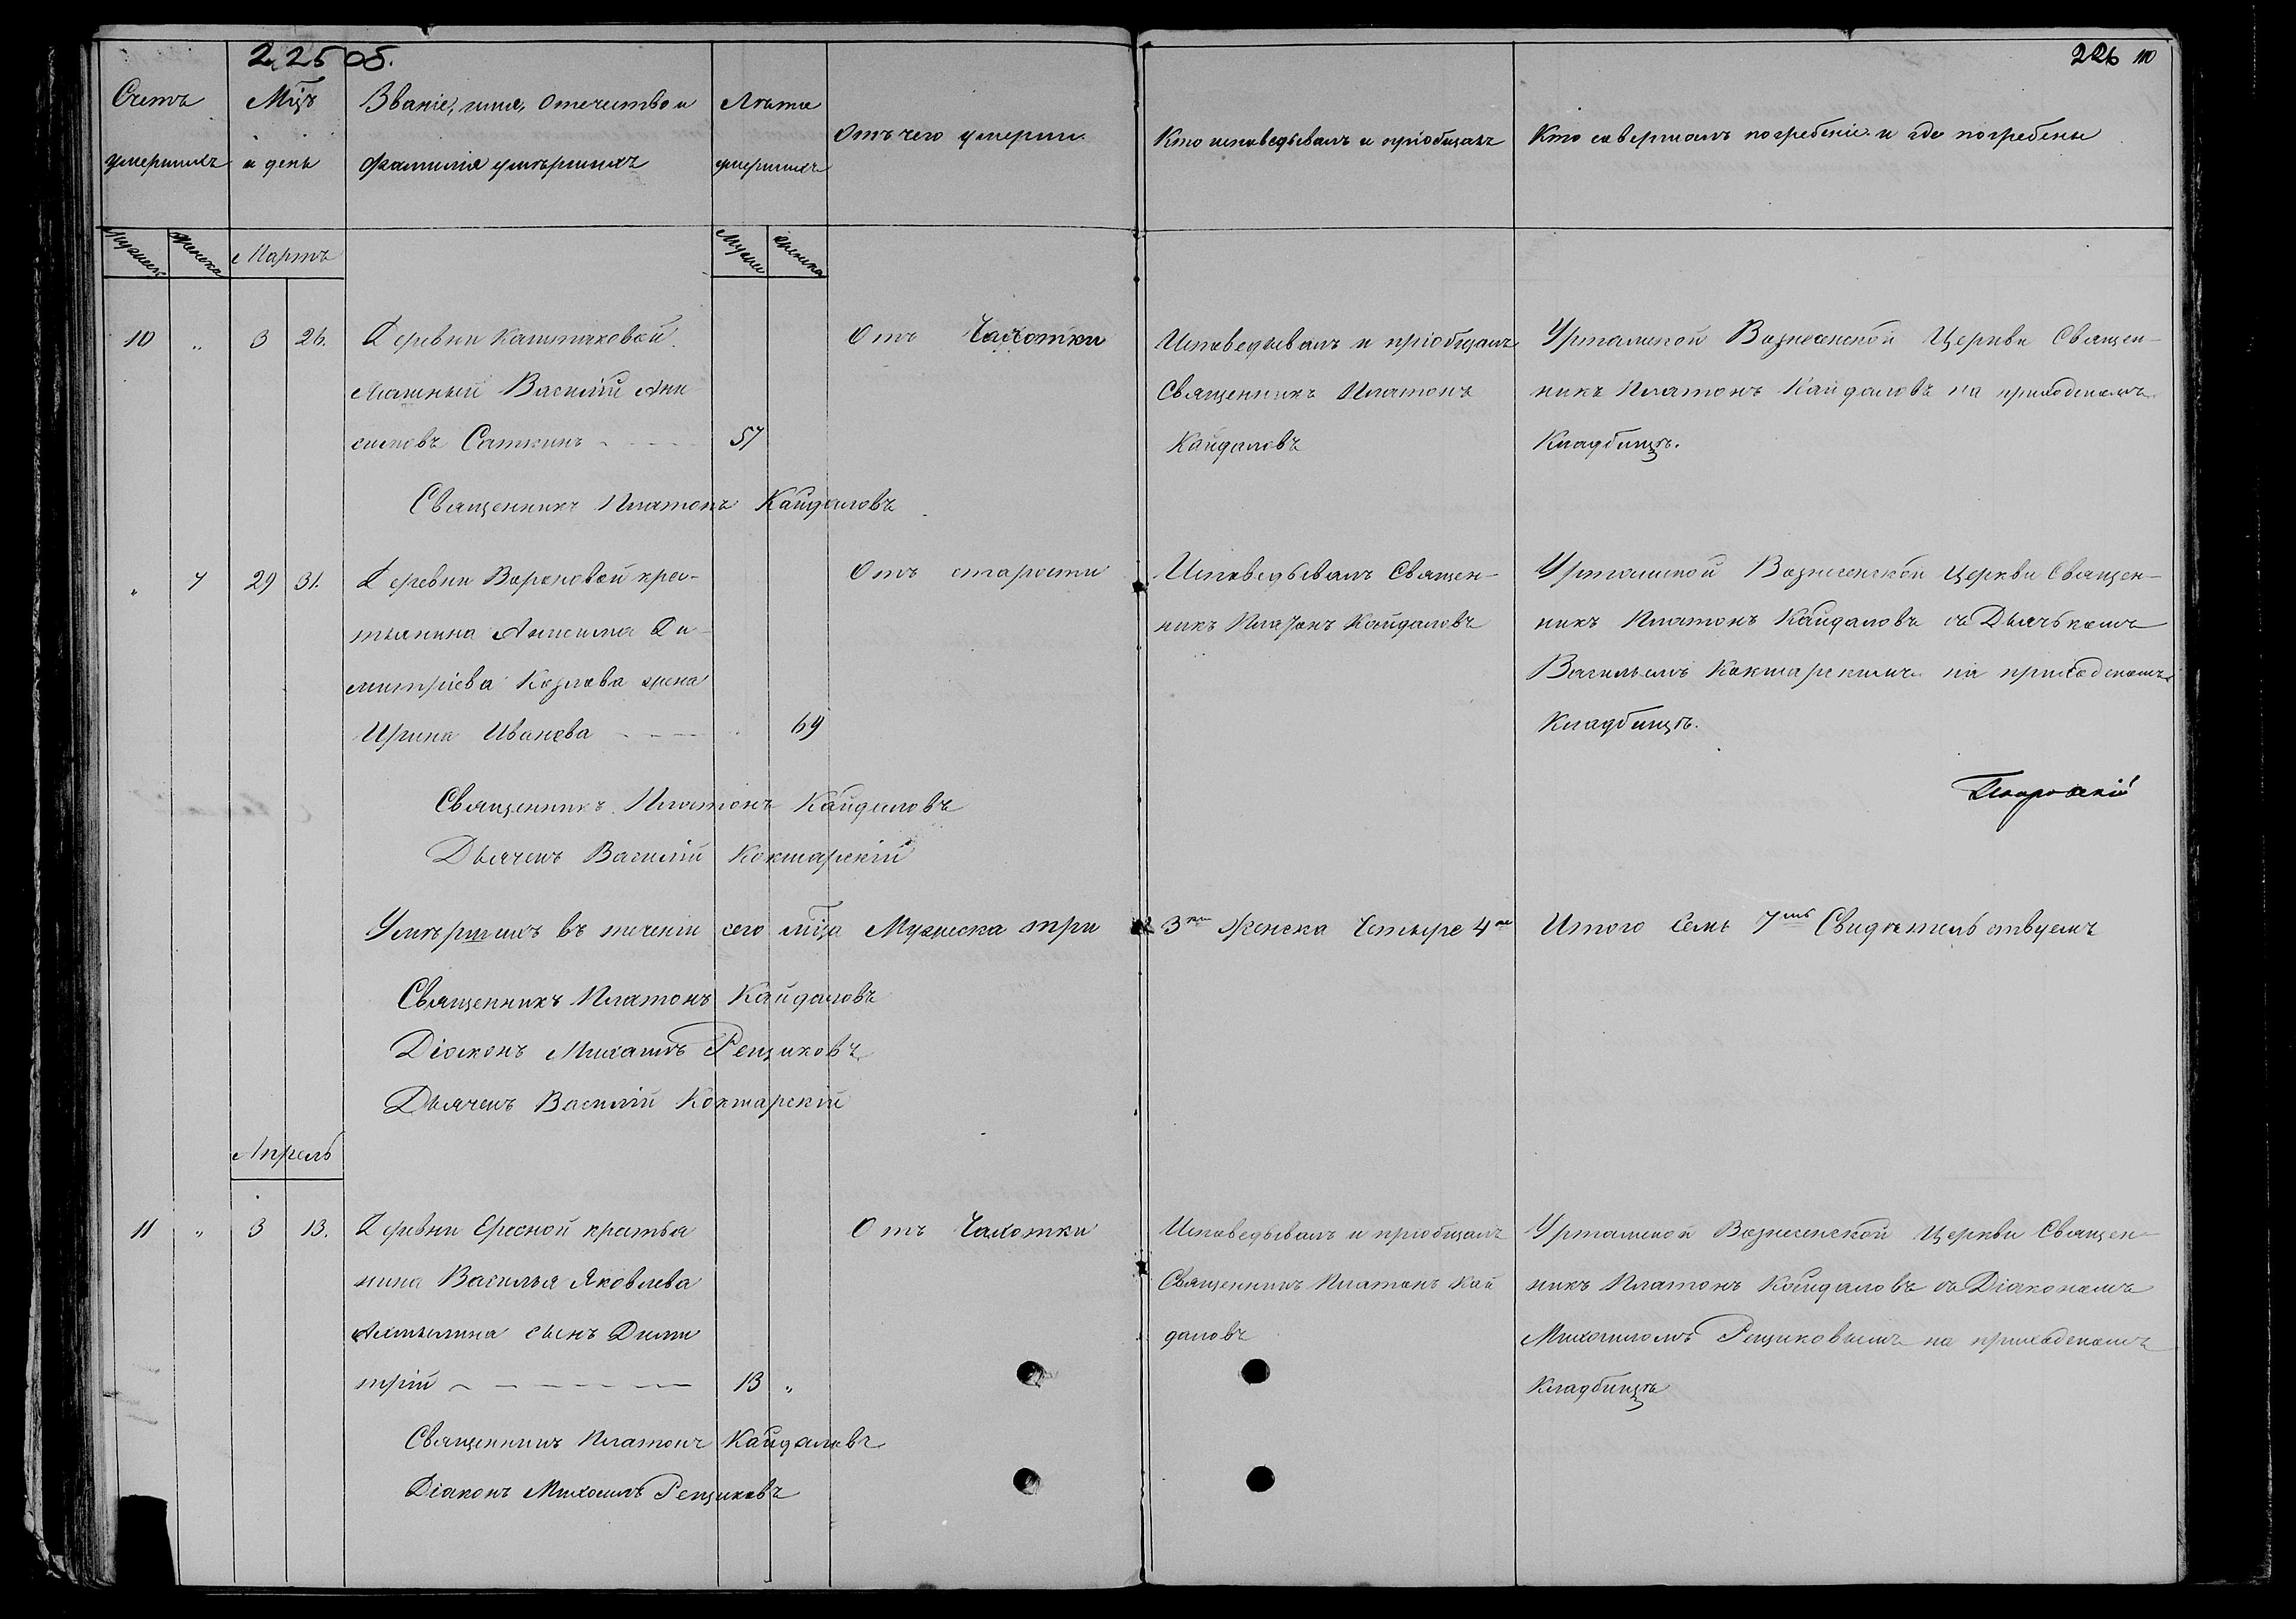 225 об.
226
Счетъ умершихъ
Мцъ и день
Званіе, имя, отечество и фамилія умершихъ
Лѣта умершихъ
Отъ чего умерли
Кто исповедывалъ и пріобщалъ
Кто совершалъ погребеніе и где погребены
Мужеска
Женска
Мартъ
Мужска
Женска
10 " 3 26.
Деревни Каштаковой
Василій Ани
симовъ Саткинъ 57
Отъ Чахотки
Исповедывалъ и пріобщалъ
Священникъ Платонъ
Кайдаловъ
Уртамской Вознесенской Церкви Священ-
никъ Платонъ Кайдаловъ на приходскомъ
Кладбищѣ.
Священникъ Платонъ Кайдаловъ
" 7 29 31.
Деревни Вороновой крес-
тьянина Анисима Ди-
митріева Козлова жена
Ирина Иванова 69
Отъ старости
Исповедывалъ Священ-
никъ Платонъ Кайдаловъ
Уртамской Вознесенской Церкви Священ-
никъ Платонъ Кайдаловъ съ Дьячькомъ
Васильемъ Кокшарскимъ на приходскомъ
Кладбищѣ.
Священникъ Платонъ Кайдаловъ
Дьячекъ Василій Кокшарскій
Умѣршихъ въ теченіи сего мца Мужеска три 3 Женска Четыре 4 Итого Семь 7мь Свидѣтельствуемъ
Священникъ Платонъ Кайдаловъ
Діаконъ Михаилъ Рещиковъ
Дьячекъ Василій Кокшарскій
Апрель
11 " 3 13.
Деревни Ересной крестья
нина Василья Яковлева
сынъ Дими
трій 13 "
Отъ Чахотки
Исповедывалъ и пріобщалъ
Священникъ Платонъ Кай
даловъ
Уртамской Вознесенской Церкви Священ-
никъ Платонъ Кайдаловъ съ Діакономъ
Михаиломъ Рещиковымъ на приходскомъ
Кладбищѣ
Священникъ Платонъ Кайдаловъ
Діаконъ Михаилъ Рещиковъ